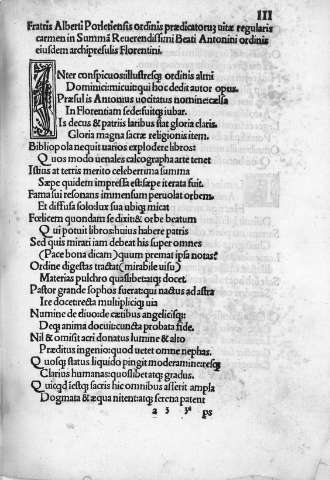 III
Fratris Alberti Porletiensis ordinis prædicatorum uitæ regularis
carmen in Summā Reuerendissimi Beati Antonini ordinis
eiusdem archipresulis Florentini.
INter conspicuos: illustresq; ordinis almi
Dominici: micuit qui hoc dedit autor opus.
Præsul is Antonius uocitatus nomine: celsa
In Florentiam sede: fuitq; iubar.
Is decus & patriis laribus stat gloria claris.
Gloria magna sacræ religionis item.
Bibliopola nequit uarios explodere libros:
Quos modo uenales calcographa arte tenet
Istius at terris merito celeberrima summa
Sæpe quidem impressa est: sæpe iterata fuit.
Fama sui resonans immensum peruolat orbem.
Et diffusa solo: lux sua ubiq; micat
Fœlicem quondam se dixit: & orbe beatum
Qui potuit libros: huius habere patris
Sed quis mirari iam debeat: his super omnes
(Pace bona dicam) quum premat ipsa notas?
Ordine digestas tractat (mirabile uisu)
Materias pulchro quaslibet: atq; docet.
Pastor grande sophos: fuerat quū nactus ad astra
Ire docet: recta multiplici q; uia
Numine de diuo: de cætibus angelicisq;:
Deq; anima docuit: cuncta probata fide.
Nil & omisit acri donatus lumine & alto
Præditus ingenio: quod uetet omne nephas.
Quosq; status liquido pingit moderamine: resq;
Clarius humanas: quoslibet: atq; gradus.
Quicqd iestq; sacris hic omnibus asserit ampla
Dogmata & æqua nitent: atq; serena patent
a 3 3ᵃ ps